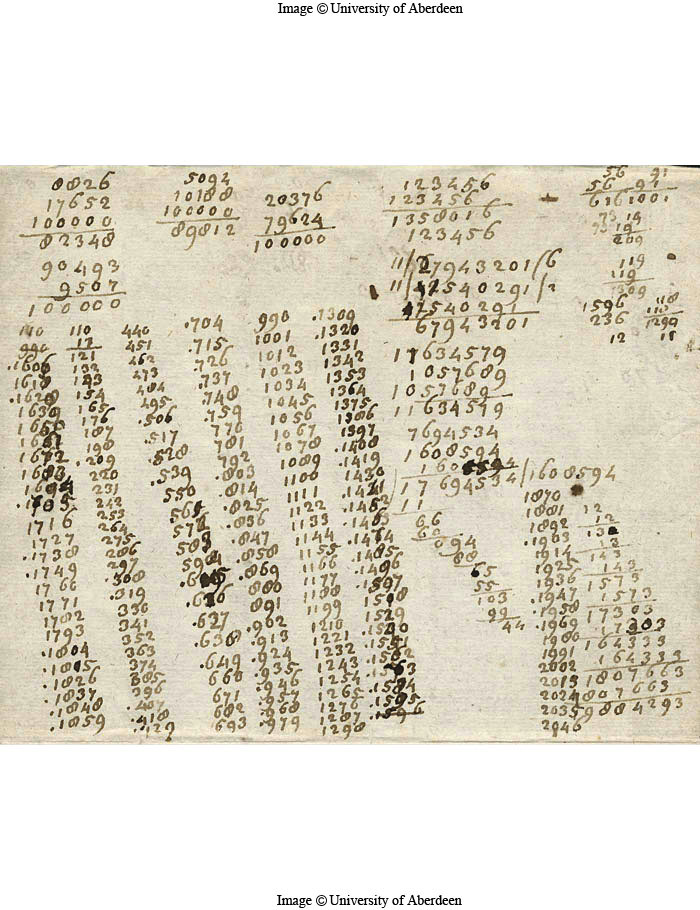 Image © University of Aberdeen
8826
17652
100000
82348
90493
9507
100000
5094
10188
100000
89812
20376
79624
100000
123456
123456
1358016
123456
11/67943201/6
11/47540291/2
47540291
67943201
11634579
1057689
1057689
11634579
7694534
1608594
1608594
17694534/1608594
11
66
66
094
88
65
55
103
99
44
56 91
56 91
6161001
73 19
209
119
119
1309
1596
236
12
118
1299
11
110
990
.1606
.1628
1639
1672
1683
1716
1727
.1738
.1749
1766
1771
1782
1793
.1804
.1815
.1826
.1837
.1848
.1859
110
11
121
132
143
154
165
176
187
198
.209
220
231
242
253
264
275
286
297
.308
.319
330
341
352
363
374
385
396
.407
.418
.429
440
451
462
473
484
495
.506
.517
.528
.539
550
561
572
583
594
.605
.616
.627
.638
.649
660
671
682
693
.704
.715
.726
.737
.748
.759
770
781
792
.803
.814
.825
.836
.847
.858
.869
880
891
.902
.913
.924
.935
.946
.957
.968
.979
990
1001
1012
1023
1034
1045
1056
1067
1078
1089
1100
1111
1122
1133
1144
1155
1166
1177
1188
1199
1210
1221
1232
1243
1254
1265
1276
1287
1298
.1309
.1320
1331
1342
1353
1364
1375
1386
1397
.1408
.1419
.1430
.1441
.1452
.1463
.1474
.1485
.1496
.1507
.1518
.1529
.1540
.1551
.1562
.1573
.1584
.1595
.1596
1870
1881
1892
.1903
.1914
.1925
.1936
.1947
.1958
.1969
1980
1991
2002
2013
2024
2035
2046
12
12
132
12
143
143
1573
1573
17303
17303
164333
164333
1807663
1807663
9884293
Image © University of Aberdeen